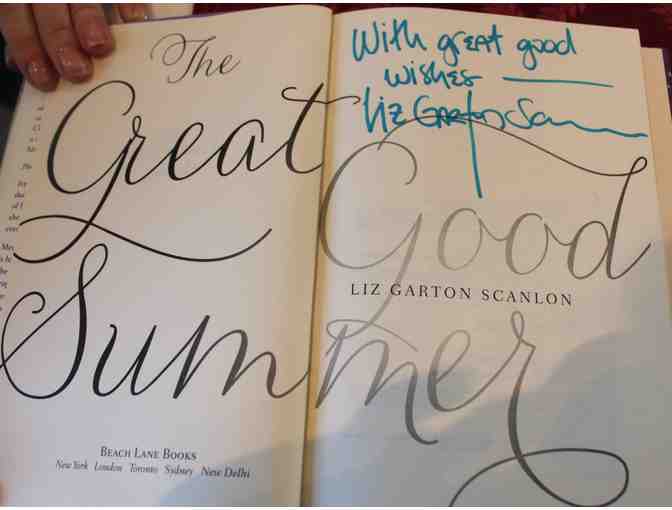 The
Great Good
Summer
With great good
wishes
Liz Garton Scanlon
LIZ GARTON SCANLON
BEACH LANE BOOKS
New York London Toronto Sydney New Delhi